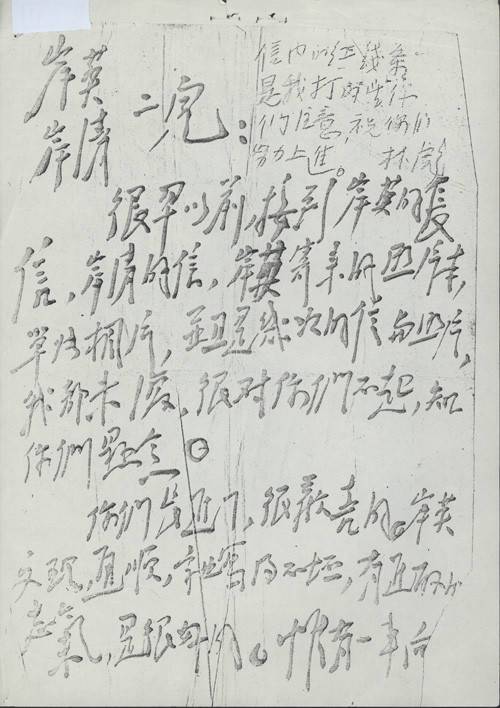 信内的红线条
是我打的望你
们注意,祝你们
努力上进。 林彪
岸英
岸清 二兒:
很早以前,接到岸英的長
信,岸清的信,岸英寄来的照片本,
單張相片,並且是幾次的信与照片,
我都未復,很對你們不起,知
你們懸念。
你們長進了,很歡喜的。岸英
文理通順,字也寫得不壞,有進取的
志氣,是很好的。惟有一事向